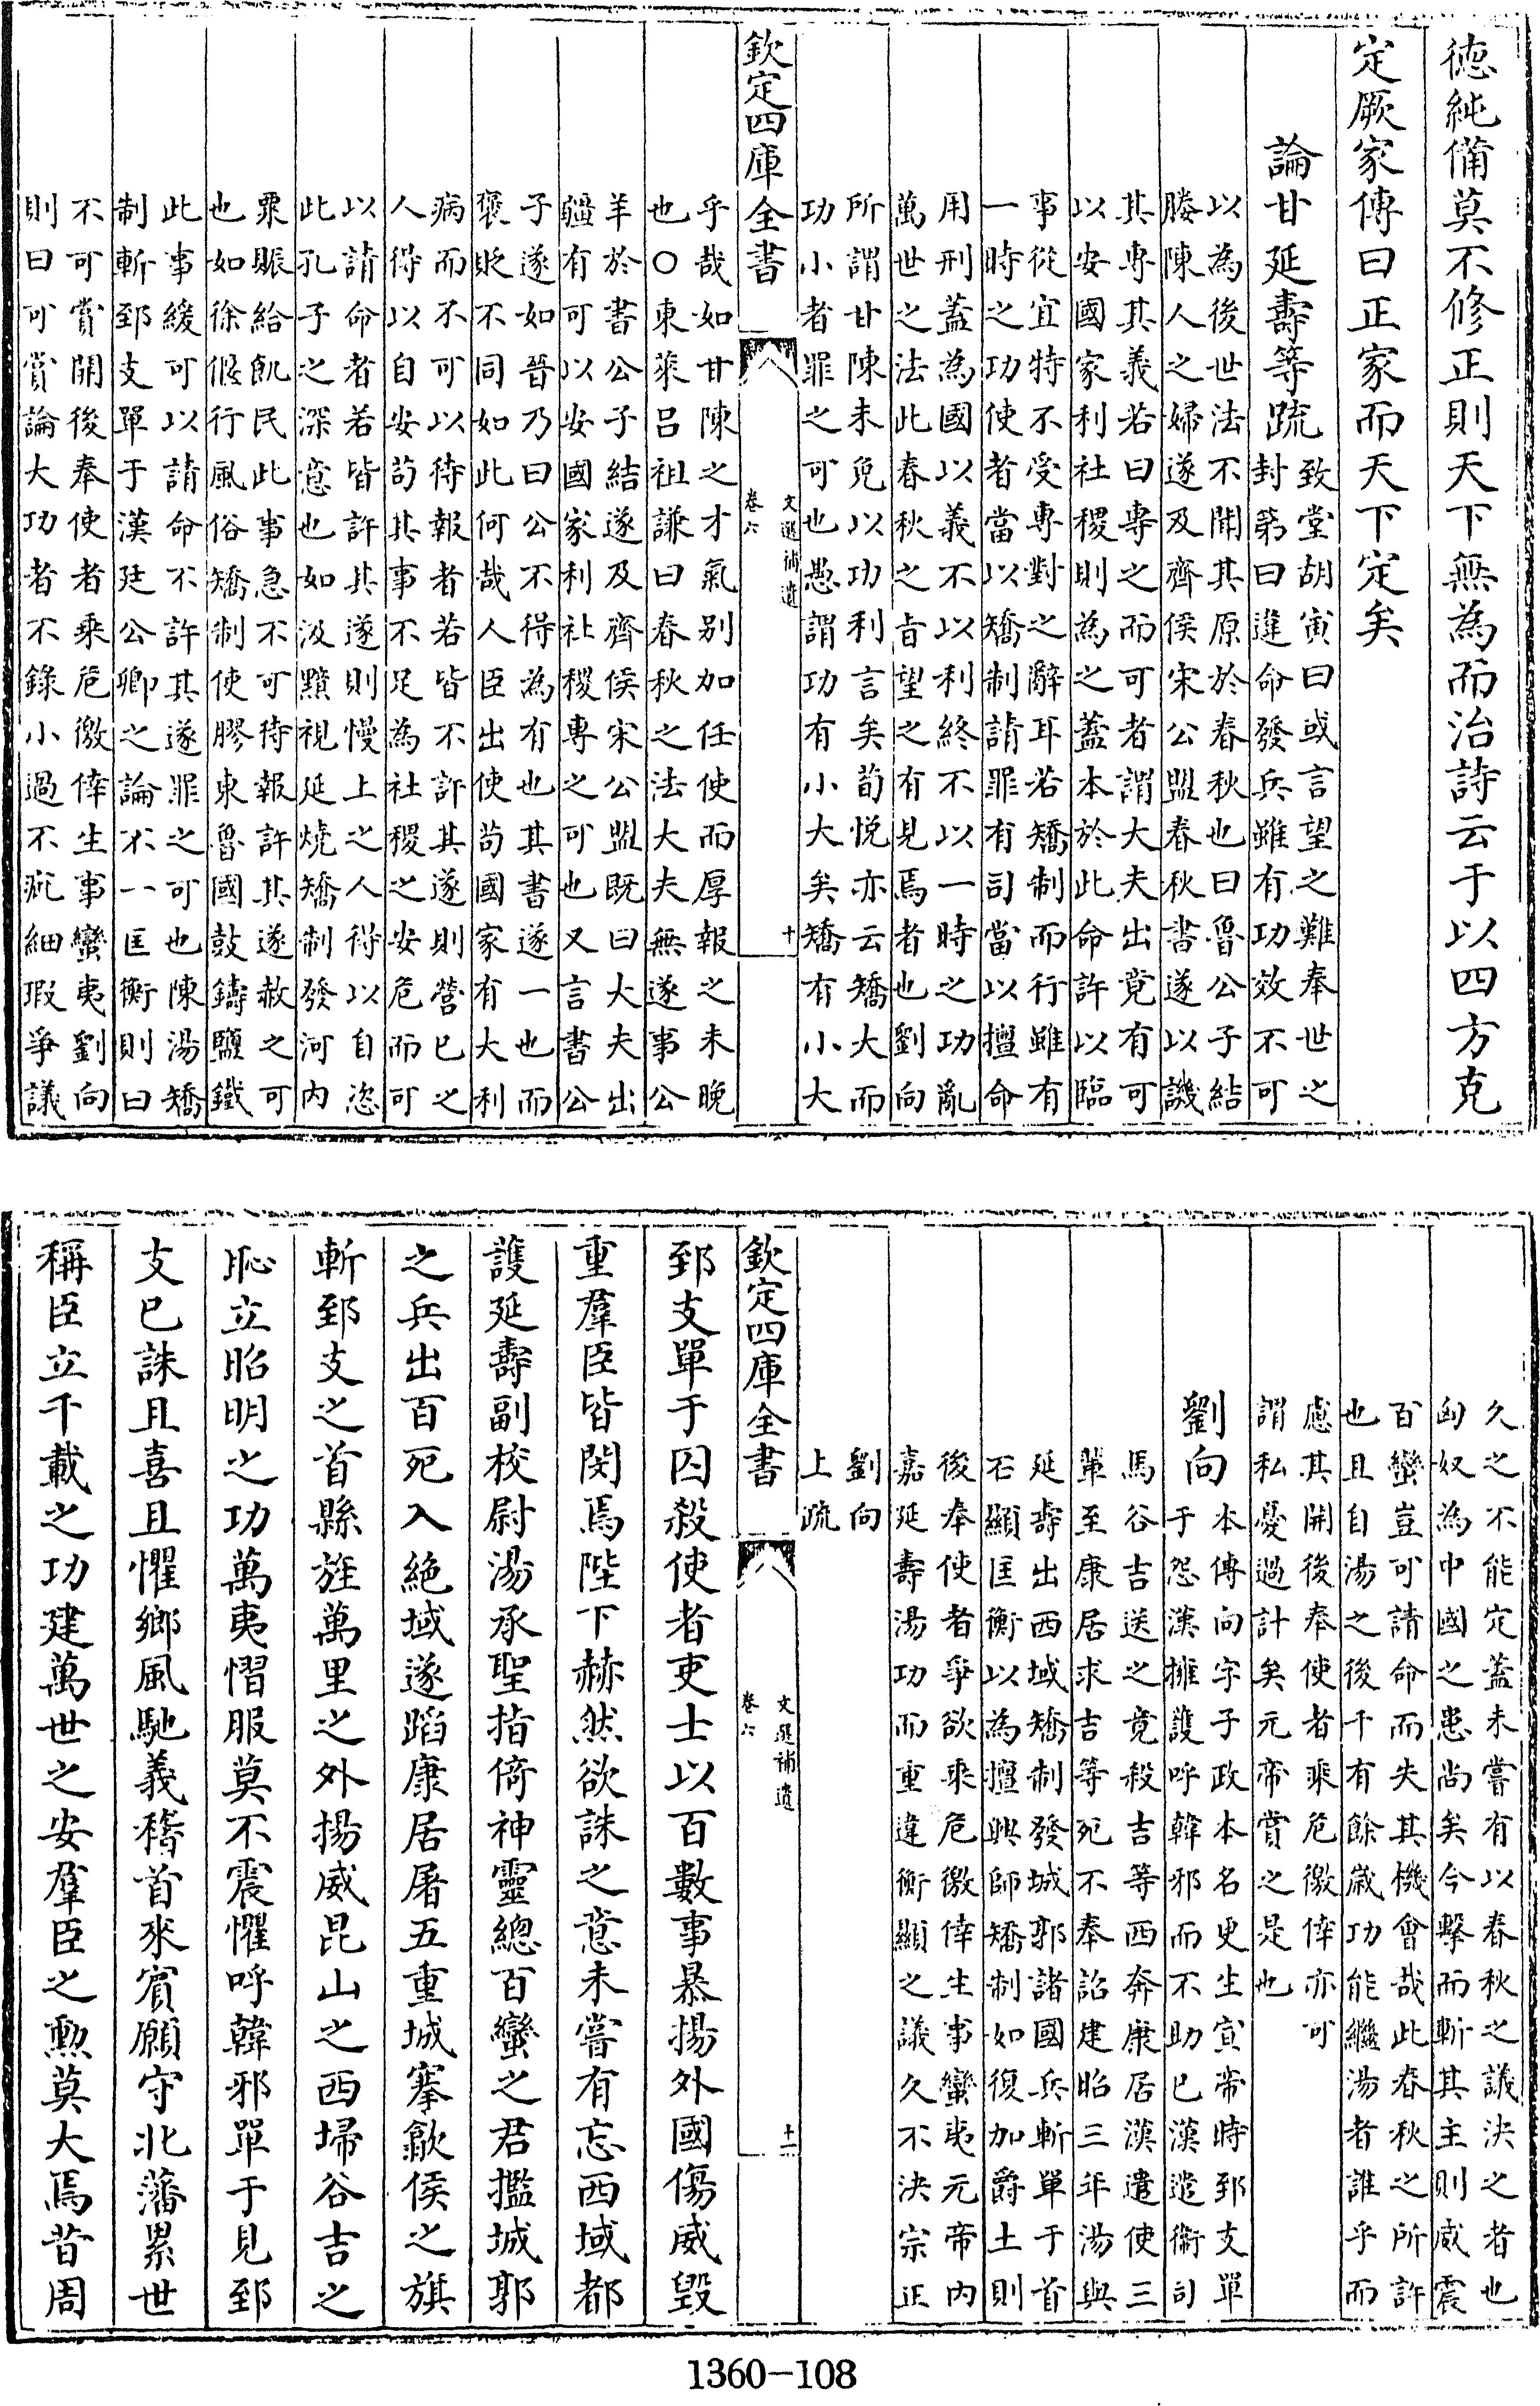 徳純備莫不修正則天下無為而治詩云于以四方克
定厥家傳曰正家而天下定矣
論甘延壽等疏
致堂胡寅曰或言望之難奉世之
封第曰違命發兵雖有功效不可
以為後世法不開其原於春秋也曰魯公子結
媵陳人之婦遂及齊侯宋公盟春秋書遂以譏
其專其義若曰專之而可者謂大夫出竟有可
以安國家利社稷則為之蓋本於此命許以臨
事從宜特不受專對之辭耳若矯制而行雖有
一時之功使者當以矯制請罪有司當以擅命
用刑蓋為國以義不以利終不以一時之功亂
萬世之法此春秋之㫖望之有見焉者也劉向
所謂甘陳未免以功利言矣荀悦亦云矯大而
功小者罪之可也愚謂功有小大矣矯有小大
欽定四庫全書
文選補遺
卷六
十
乎哉如甘陳之才氣别加任使而厚報之未晚
也○東萊吕祖謙曰春秋之法大夫無遂事公
羊於書公子結遂及齊侯宋公盟既曰大夫出
疆有可以安國家利社稷專之可也又言書公
子遂如晉乃曰公不得為有也其書遂一也而
襃貶不同如此何哉人臣出使苟國家有大利
病而不可以待報者若皆不許其遂則營已之
人得以自安苟其事不足為社稷之安危而可
以請命者若皆許其遂則慢上之人得以自恣
此孔子之深意也如汲黯視延燒矯制發河内
粟賑給飢民此事急不可待報許其遂赦之可
也如徐偃行風俗矯制使膠東魯國鼓鑄鹽鐵
此事緩可以請命不許其遂罪之可也陳湯矯
制斬郅支單于漢廷公卿之論不一匡衡則曰
不可賞開後奉使者乘危徼倖生事蠻夷劉向
則曰可賞論大功者不錄小過不疵細瑕爭議
久之不能定蓋未嘗有以春秋之議決之者也
匈奴為中國之患尚矣今擊而斬其主則威震
百蠻豈可請命而失其機會哉此春秋之所許
也且自湯之後千有餘歲功能繼湯者誰乎而
慮其開後奉使者乘危徼倖亦可
謂私憂過計矣元帝賞之是也
劉向
本傳向字子政本名更生宣帝時郅支單
于怨漢擁護呼韓邪而不助已漢遣衛司
馬谷吉送之竟殺吉等西奔康居漢遣使三
輩至康居求吉等死不奉詔建昭三年湯與
延壽出西域矯制發城郭諸國兵斬單于首
石顯匡衡以為擅興師矯制如復加爵土則
後奉使者爭欲乘危徼倖生事蠻夷元帝内
嘉延壽湯功而重違衡顯之議久不決宗正
劉向
上疏
欽定四庫全書
文選補遺
卷六
十一
郅支單于囚殺使者吏士以百數事暴揚外國傷威毀
重羣臣皆閔焉陛下赫然欲誅之意未嘗有忘西域都
護延壽副校尉湯承聖指倚神靈總百蠻之君擥城郭
之兵出百死入絶域遂蹈康居屠五重城搴歙侯之旗
斬郅支之首縣旌萬里之外揚威昆山之西埽谷吉之
恥立昭明之功萬夷慴服莫不震懼呼韓邪單于見郅
支已誅且喜且懼鄉風馳義稽首來賓願守北藩累世
稱臣立千載之功建萬世之安羣臣之勲莫大焉昔周
1360-108